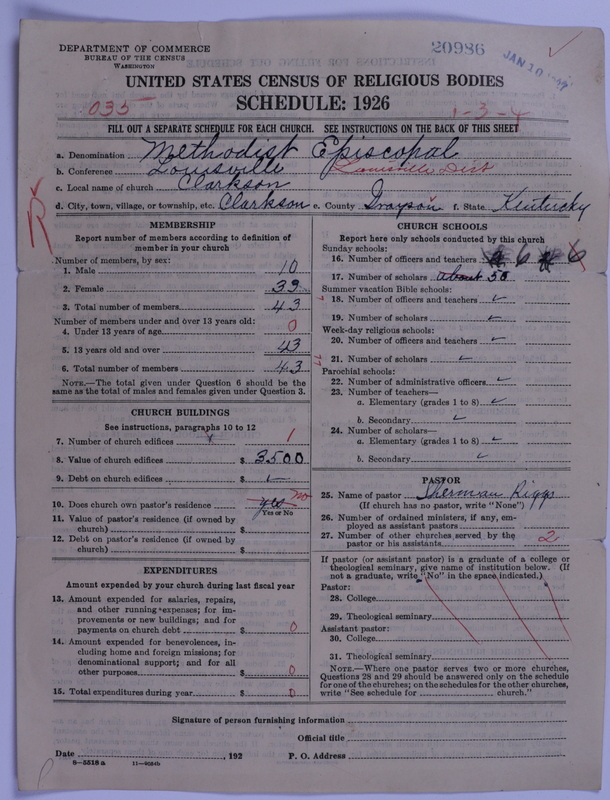 DEPARTMENT OF COMMERCE
BUREAU OF THE CENSUS
WASHINGTON
20986
JAN 10
UNITED STATES CENSUS OF RELIGIOUS BODIES
SCHEDULE: 1926
035
1-3-4
FILL OUT A SEPARATE SCHEDULE FOR EACH CHURCH. SEE INSTRUCTIONS ON THE BACK OF THIS SHEET
a. Denomination Methodist Episcopal
b. Conference Louisville Louisville Dist
c. Local name of church Clarkson
d. City, town, village, or township, etc. Clarkson e. County Grayson f. State Kentucky
MEMBERSHIP
Report number of members according to definition of
member in your church
Number of members, by sex:
1. Male 10
2. Female 39
3. Total number of members 43
Number of members under and over 13 years old:
4. Under 13 years of age 0
5. 13 years old and over 43
6. Total number of members 43
NOTE.—The total given under Question 6 should be the
same as the total of males and females given under Question 3.
CHURCH BUILDINGS
See instructions, paragraphs 10 to 12
7. Number of church edifices 1
8. Value of church edifices $ 3500
9. Debt on church edifices $
10. Does church own pastor's residence yes no
Yes or No
11. Value of pastor's residence (if owned by
church) $
12. Debt on pastor's residence (if owned by
church) $
EXPENDITURES
Amount expended by your church during last fiscal year
13. Amount expended for salaries, repairs,
and other running expenses; for im-
provements or new buildings; and for
payments on church debt $ 0
14. Amount expended for benevolences, in-
cluding home and foreign missions; for
denominational support; and for all
other purposes $ 0
15. Total expenditures during year $ 0
CHURCH SCHOOLS
Report here only schools conducted by this church
Sunday schools:
16. Number of officers and teachers 6 6
17. Number of scholars about 50
Summer vacation Bible schools:
18. Number of officers and teachers
19. Number of scholars
Week-day religious schools:
20. Number of officers and teachers
21. Number of scholars
Parochial schools:
22. Number of administrative officers
23. Number of teachers—
a. Elementary (grades 1 to 8)
b. Secondary
24. Number of scholars—
a. Elementary (grades 1 to 8)
b. Secondary
PASTOR
25. Name of pastor Sherman Riggs
(If church has no pastor, write "None")
26. Number of ordained ministers, if any, em-
ployed as assistant pastors
27. Number of other churches served by the
pastor or his assistants 2
If pastor (or assistant pastor) is a graduate of a college or
theological seminary, give name of institution below. (If
not a graduate, write "No" in the space indicated.)
Pastor:
28. College
29. Theological seminary
Assistant pastor:
30. College
31. Theological seminary
NOTE.—Where one pastor serves two or more churches,
Questions 28 and 29 should be answered only on the schedule
for one of the churches; on the schedules for the other churches,
write "See schedule for church."
Signature of person furnishing information
Official title
Date , 192 P. O. Address
8-5518 a